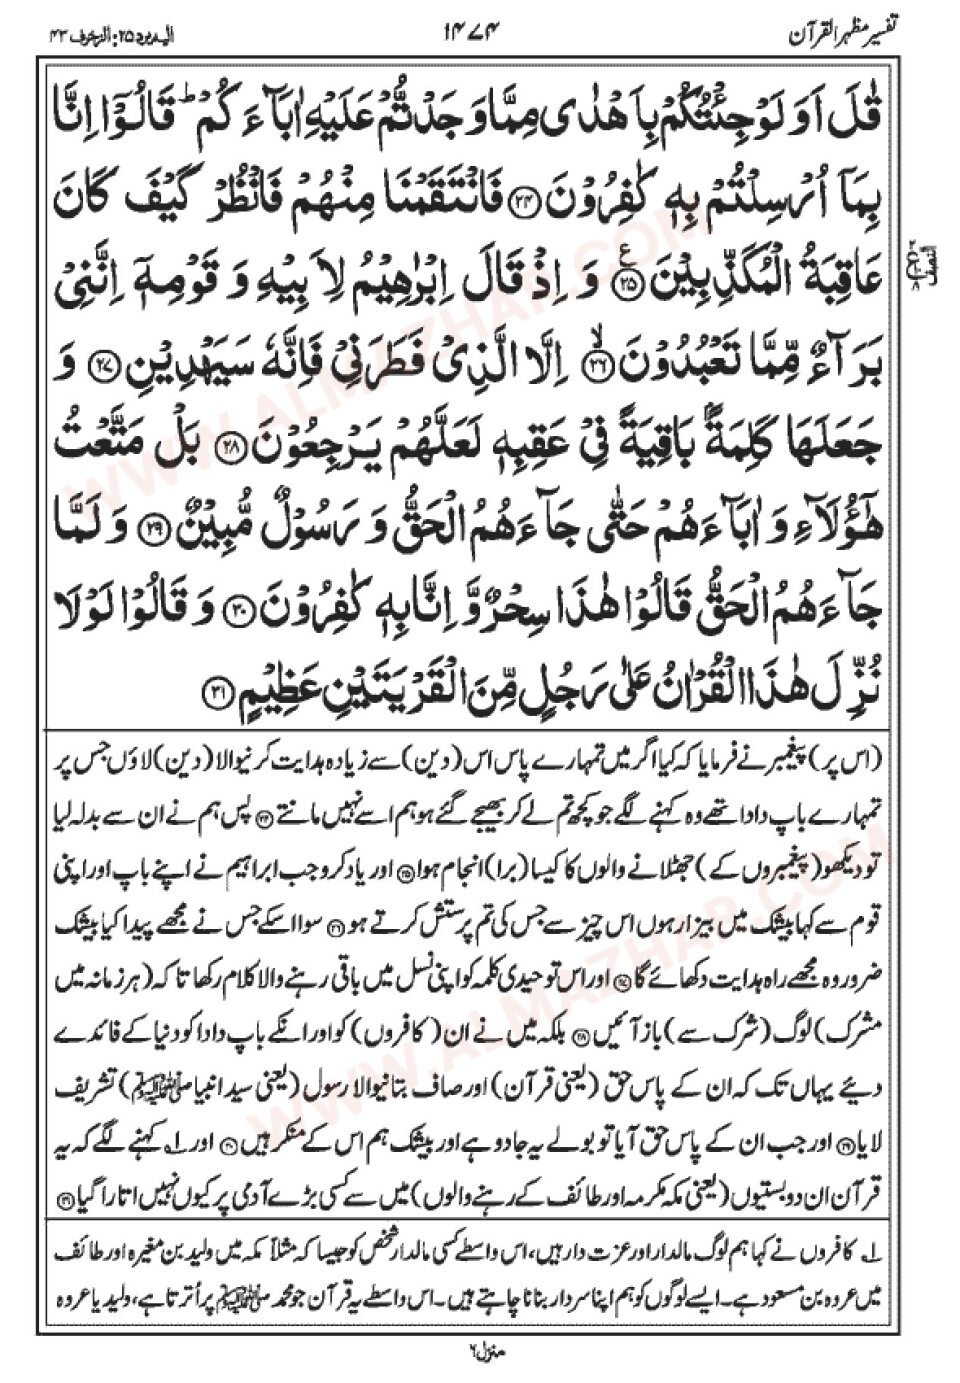 تفسیر مظہر القرآن
۱۴۷۴
الیہ یرد ۲۵: الزخرف ۴۳
قٰلَ اَوَ لَوْ جِئْتُكُمْ بِاَهْدٰى مِمَّا وَجَدْتُّمْ عَلَیْهِ اٰبَآءَكُمْ ؕ قَالُوْۤا اِنَّا
بِمَاۤ اُرْسِلْتُمْ بِهٖ كٰفِرُوْنَ ﴿۲۴﴾ فَانْتَقَمْنَا مِنْهُمْ فَانْظُرْ كَیْفَ كَانَ
عَاقِبَةُ الْمُكَذِّبِیْنَ ﴿۲۵﴾ ع وَ اِذْ قَالَ اِبْرٰهِیْمُ لِاَبِیْهِ وَ قَوْمِهٖۤ اِنَّنِیْ
بَرَآءٌ مِّمَّا تَعْبُدُوْنَ ﴿۲۶﴾ۙ اِلَّا الَّذِیْ فَطَرَنِیْ فَاِنَّهٗ سَیَهْدِیْنِ ﴿۲۷﴾ وَ
جَعَلَهَا كَلِمَةًۢ بَاقِیَةً فِیْ عَقِبِهٖ لَعَلَّهُمْ یَرْجِعُوْنَ ﴿۲۸﴾ بَلْ مَتَّعْتُ
هٰۤؤُلَآءِ وَ اٰبَآءَهُمْ حَتّٰى جَآءَهُمُ الْحَقُّ وَ رَسُوْلٌ مُّبِیْنٌ ﴿۲۹﴾ وَ لَمَّا
جَآءَهُمُ الْحَقُّ قَالُوْا هٰذَا سِحْرٌ وَّ اِنَّا بِهٖ كٰفِرُوْنَ ﴿۳۰﴾ وَ قَالُوْا لَوْ لَا
نُزِّلَ هٰذَا الْقُرْاٰنُ عَلٰى رَجُلٍ مِّنَ الْقَرْیَتَیْنِ عَظِیْمٍ ﴿۳۱﴾
(اس پر) پیغمبر نے فرمایا کہ کیا اگر میں تمہارے پاس اس (دین) سے زیادہ ہدایت کرنیوالا (دین) لاؤں جس پر
تمہارے باپ دادا تھے وہ کہنے لگے جو کچھ تم لے کر بھیجے گئے ہو ہم اسے نہیں مانتے ﴿۲۴﴾ پس ہم نے ان سے بدلہ لیا
تو دیکھو (پیغمبروں کے) جھٹلانے والوں کا کیسا (برا) انجام ہوا ﴿۲۵﴾ اور یاد کرو جب ابراہیم نے اپنے باپ اور اپنی
قوم سے کہا بیشک میں بیزار ہوں اس چیز سے جس کی تم پرستش کرتے ہو ﴿۲۶﴾ سوا اسکے جس نے مجھے پیدا کیا بیشک
ضرور وہ مجھے راہ ہدایت دکھائے گا ﴿۲۷﴾ اور اس توحیدی کلمہ کو اپنی نسل میں باقی رہنے والا کلام رکھا تاکہ (ہر زمانہ میں
مشرک) لوگ (شرک سے) باز آئیں ﴿۲۸﴾ بلکہ میں نے ان (کافروں) کو اور انکے باپ دادا کو دنیا کے فائدے
دئیے یہاں تک کہ ان کے پاس حق (یعنی قرآن) اور صاف بتانیوالا رسول (یعنی سید انبیا ﷺ) تشریف
لایا ﴿۲۹﴾ اور جب ان کے پاس حق آیا تو بولے یہ جادو ہے اور بیشک ہم اس کے منکر ہیں ﴿۳۰﴾ اور ۱ کہنے لگے کہ یہ
قرآن ان دو بستیوں (یعنی مکہ مکرمہ اور طائف کے رہنے والوں) میں سے کسی بڑے آدمی پر کیوں نہیں اتارا گیا ﴿۳۱﴾
۱ کافروں نے کہا ہم لوگ مالدار اور عزت دار ہیں، اس واسطے کسی مالدار شخص کو جیسا کہ مثلاً مکہ میں ولید بن مغیرہ اور طائف
میں عروہ بن مسعود ہے۔ ایسے لوگوں کو ہم اپنا سردار بنانا چاہتے ہیں۔ اس واسطے یہ قرآن جو محمد ﷺ پر اُترتا ہے، ولید یا عروہ
منزل ۶
WWW.ALMAZHAR.COM
WWW.ALMAZHAR.COM